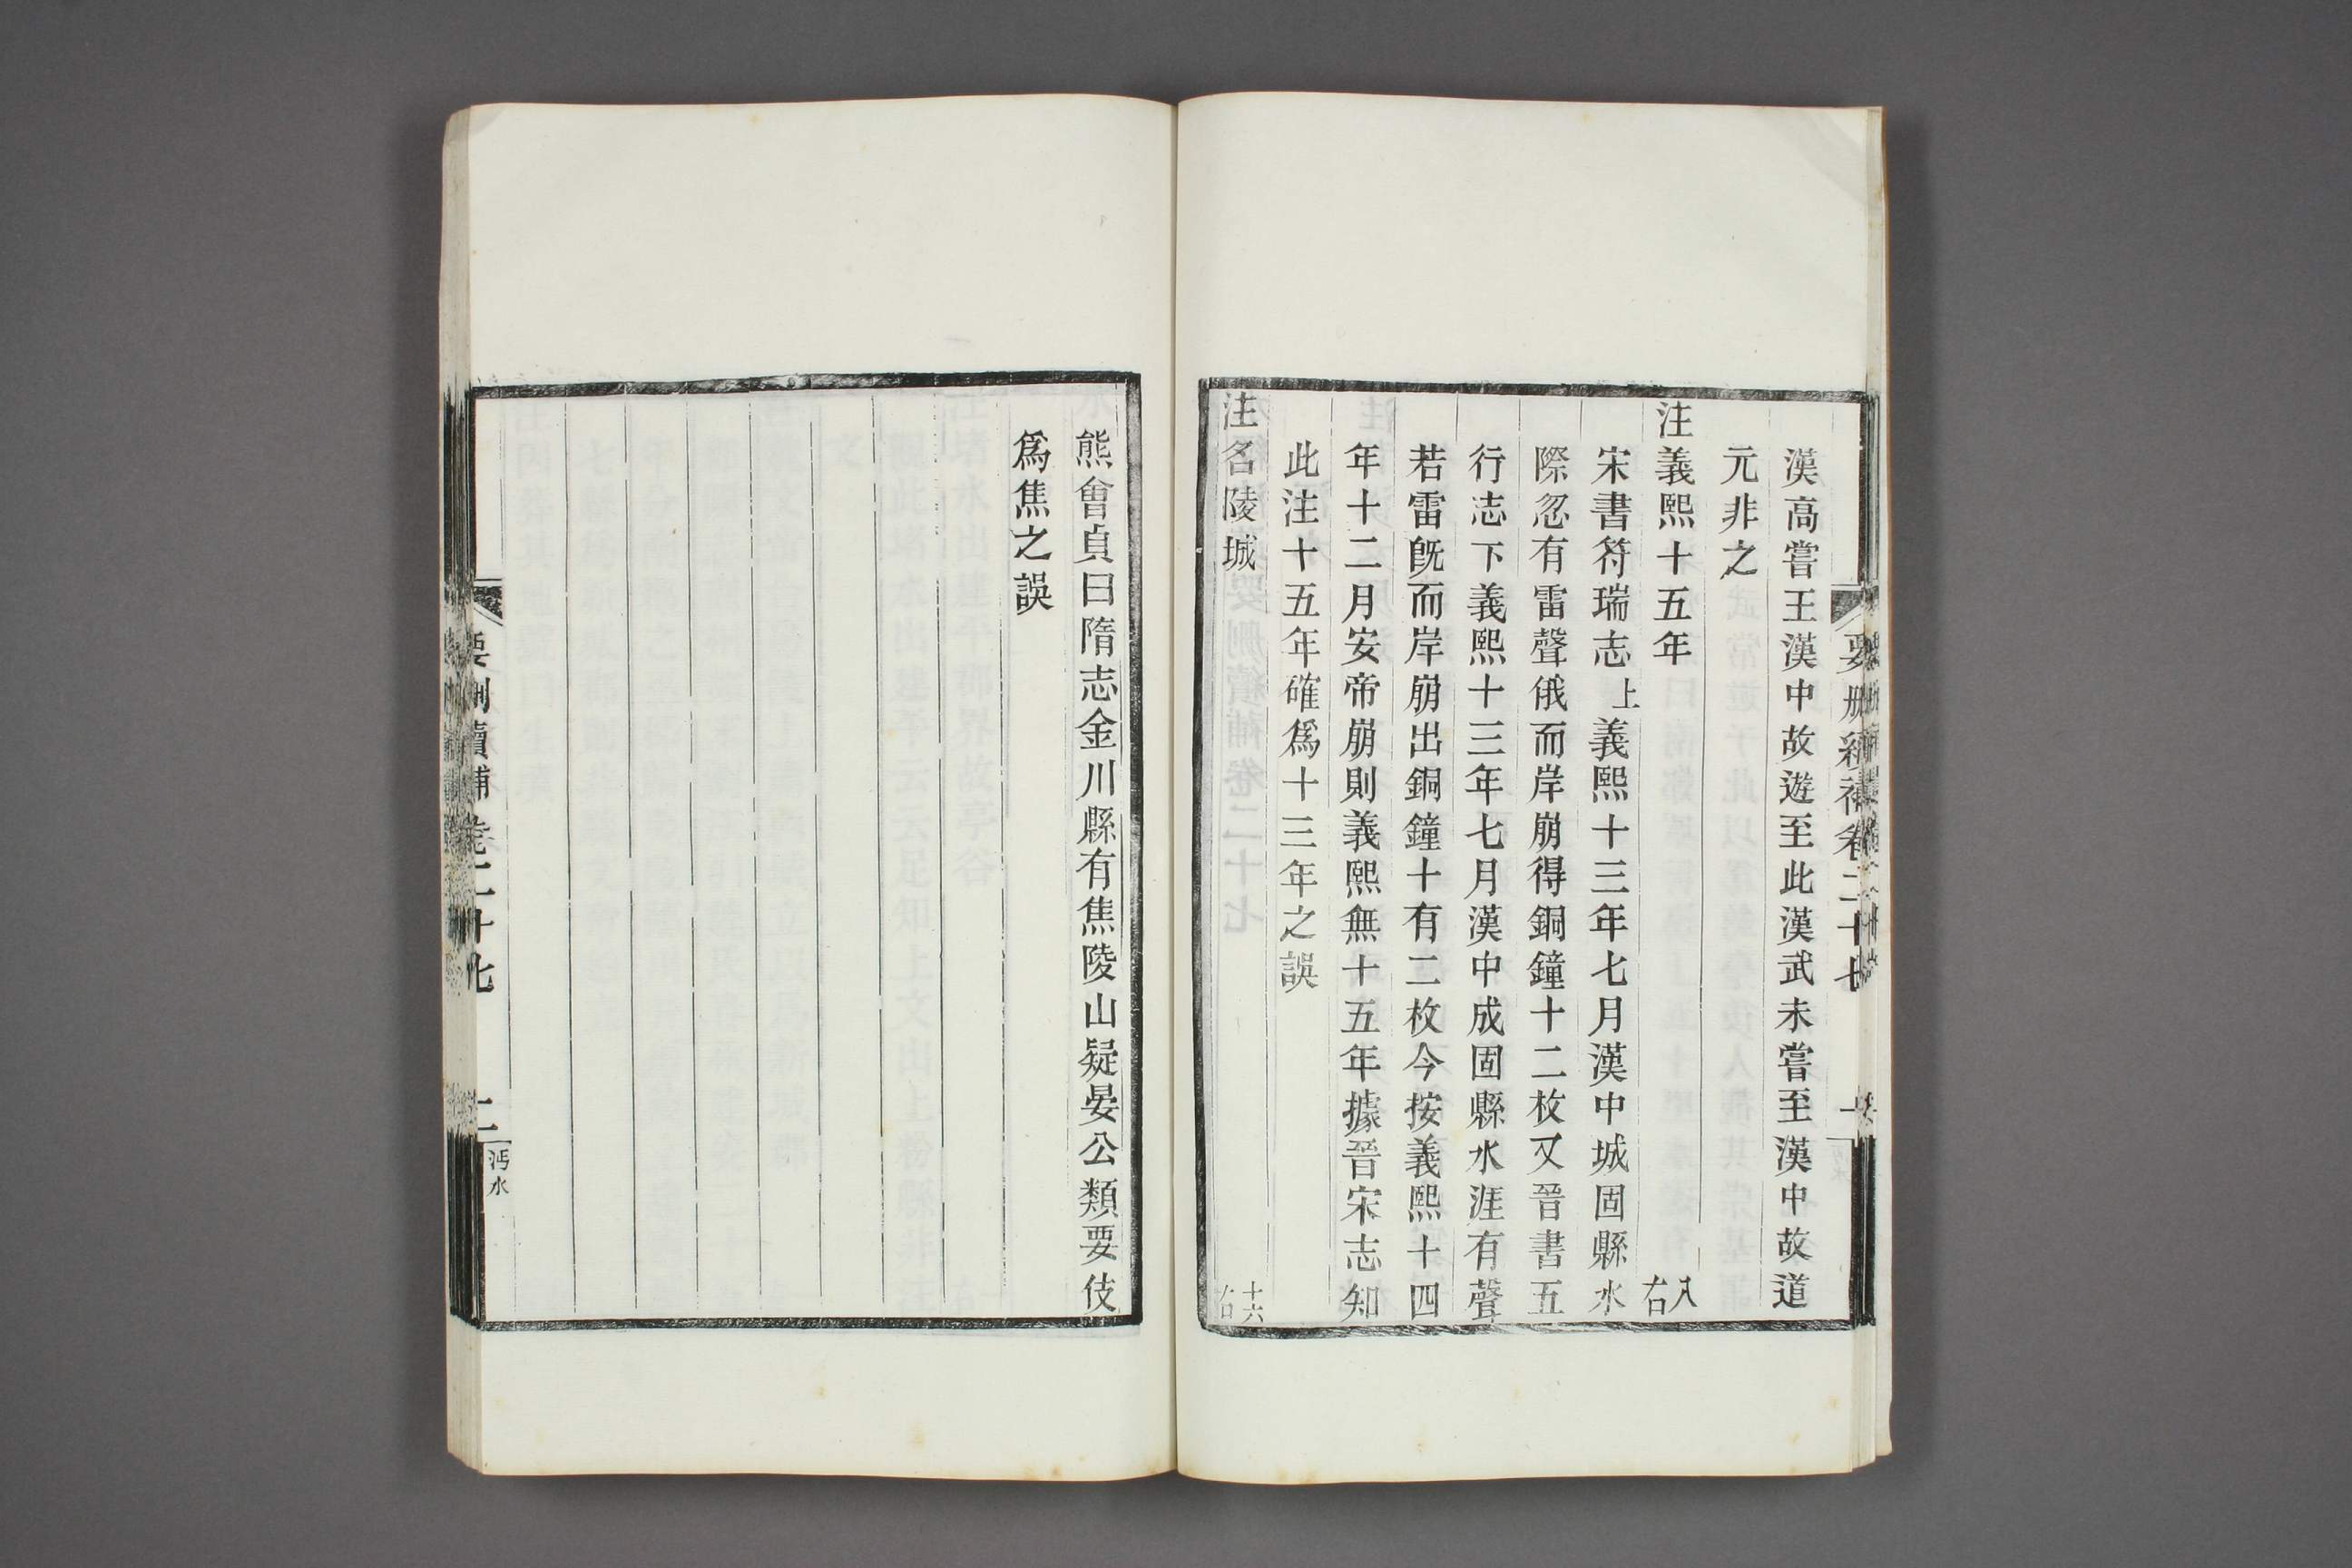 漢高嘗王漢中故遊至此漢武未嘗至漢中故道
元非之
注義熙十五年 八右
宋書符瑞志上義熙十三年七月漢中城固縣水
際忽有雷聲俄而岸崩得銅鐘十二枚又晉書五
行志下義熙十三年七月漢中成固縣水涯有聲
若雷旣而岸崩出銅鐘十有二枚今按義熙十四
年十二月安帝崩則義熙無十五年據晉宋志知
此注十五年確爲十三年之誤
注名陵城 十六右
熊會貞曰隋志金川縣有焦陵山疑晏公類要伎
爲焦之誤
要刪續補卷二十七
沔水